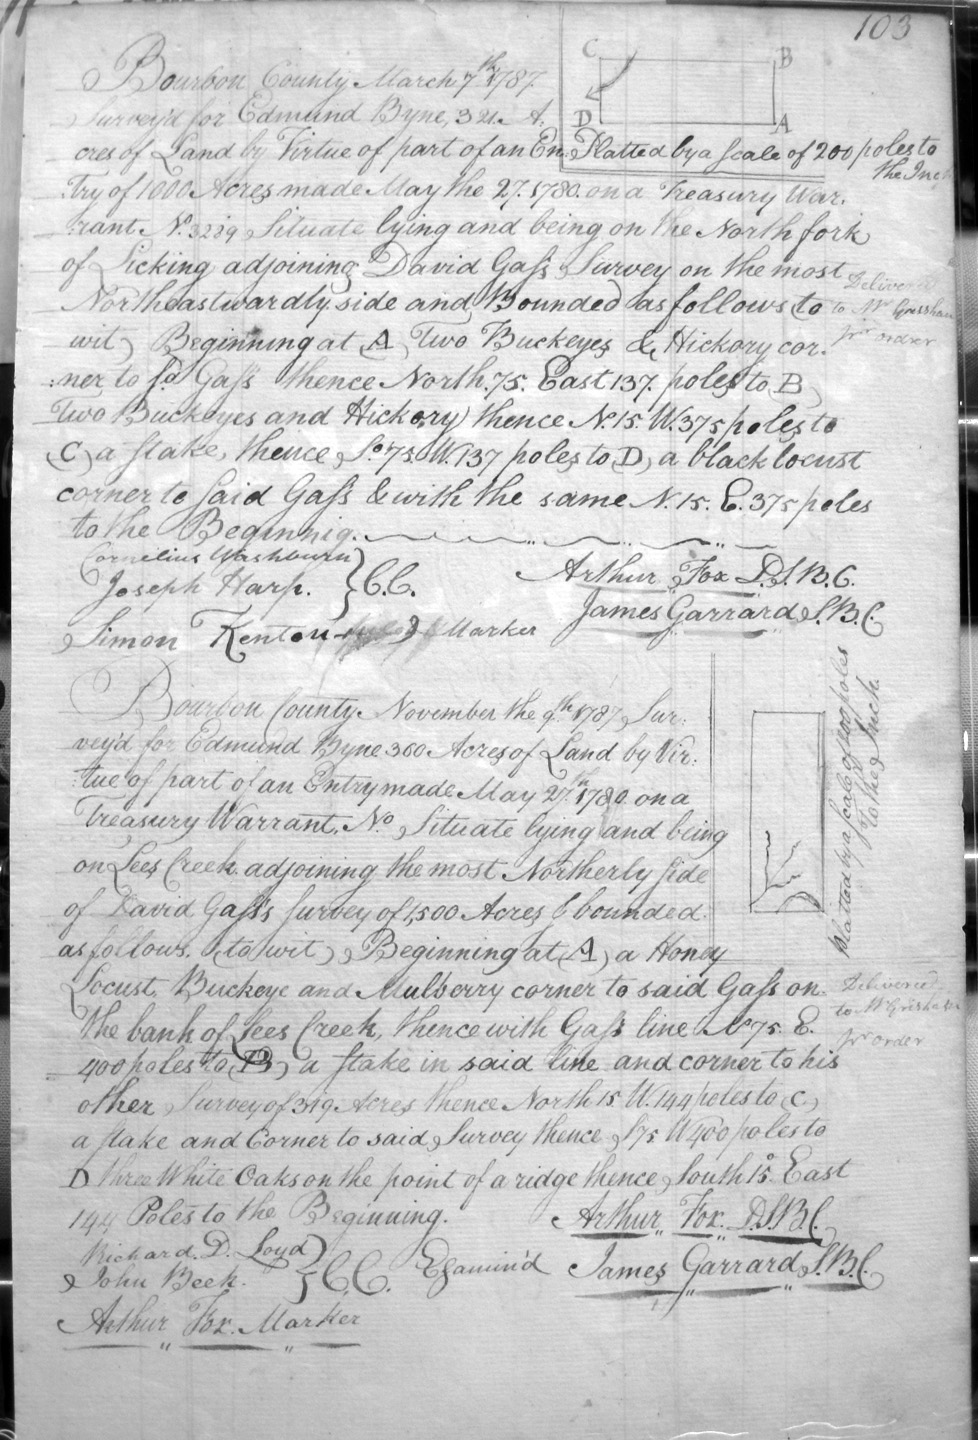 103
C B
D A
Platted by a Scale of 200 poles to
the Inch
Bourbon County March 7th 1787
Survey'd for Edmund Byne, 321. A.
cres of Land by Virtue of part of an En.
try of 1000 Acres made May the 27. 1780. on a Treasury War.
rant No. 3289 Situate lying and being on the North fork
of Licking adjoining David Gass Survey on the most
Northeastwardly side and Bounded as follows (to
wit) Beginning at (A) Two Buckeyes & Hickory cor.
ner to sd. Gass thence North.75. East 137. poles to (B)
Two Buckeyes and Hickory) thence N.15. W. 375 poles to
(C) a stake, thence So. 75. W. 137 poles to (D) a black locust
corner to said Gass & with the same N. 15. E. 375 poles
to the Beginnig.
Delivered
to Mr. Gresham
pr order
Cornelius Washburn
Joseph Harp. } C.C.
Simon Kenton Marker
Arthur Fox D.S.B.C.
James Garrard S.B.C.
Bourbon County. November the 9th 1787 Sur:
vey'd for Edmund Byne 360 Acres of Land by Vir:
tue of part of an Entry made May 27th 1780 on a
Treasury Warrant. No. Situate lying and being
on Lees Creek adjoining the most Northerly side
of David Gass's survey of 1,500 Acres & bounded.
as follows. (to wit) Beginning at (A) a Honey
Locust, Buckeye and Mulberry corner to said Gass on
the bank of Lees Creek, thence with Gass line No 75. E.
400 poles to (B) a stake in said line and corner to his
other Survey of 319 Acres thence North 15. W. 144 poles to (C)
a stake and Corner to said Survey thence S 75 W 400 poles to
D three White Oaks on the point of a ridge thence South 15° East
144 Poles to the Beginning.
Platted by a Scale of 200 poles
to the Inch.
Delivered
to Mr Gresham
pr order
Richard. D. Loyd
& John Beek. } C.C.
Arthur Fox. Marker
Examin'd
Arthur Fox. D.S.B.C.
James Garrard S.B.C.